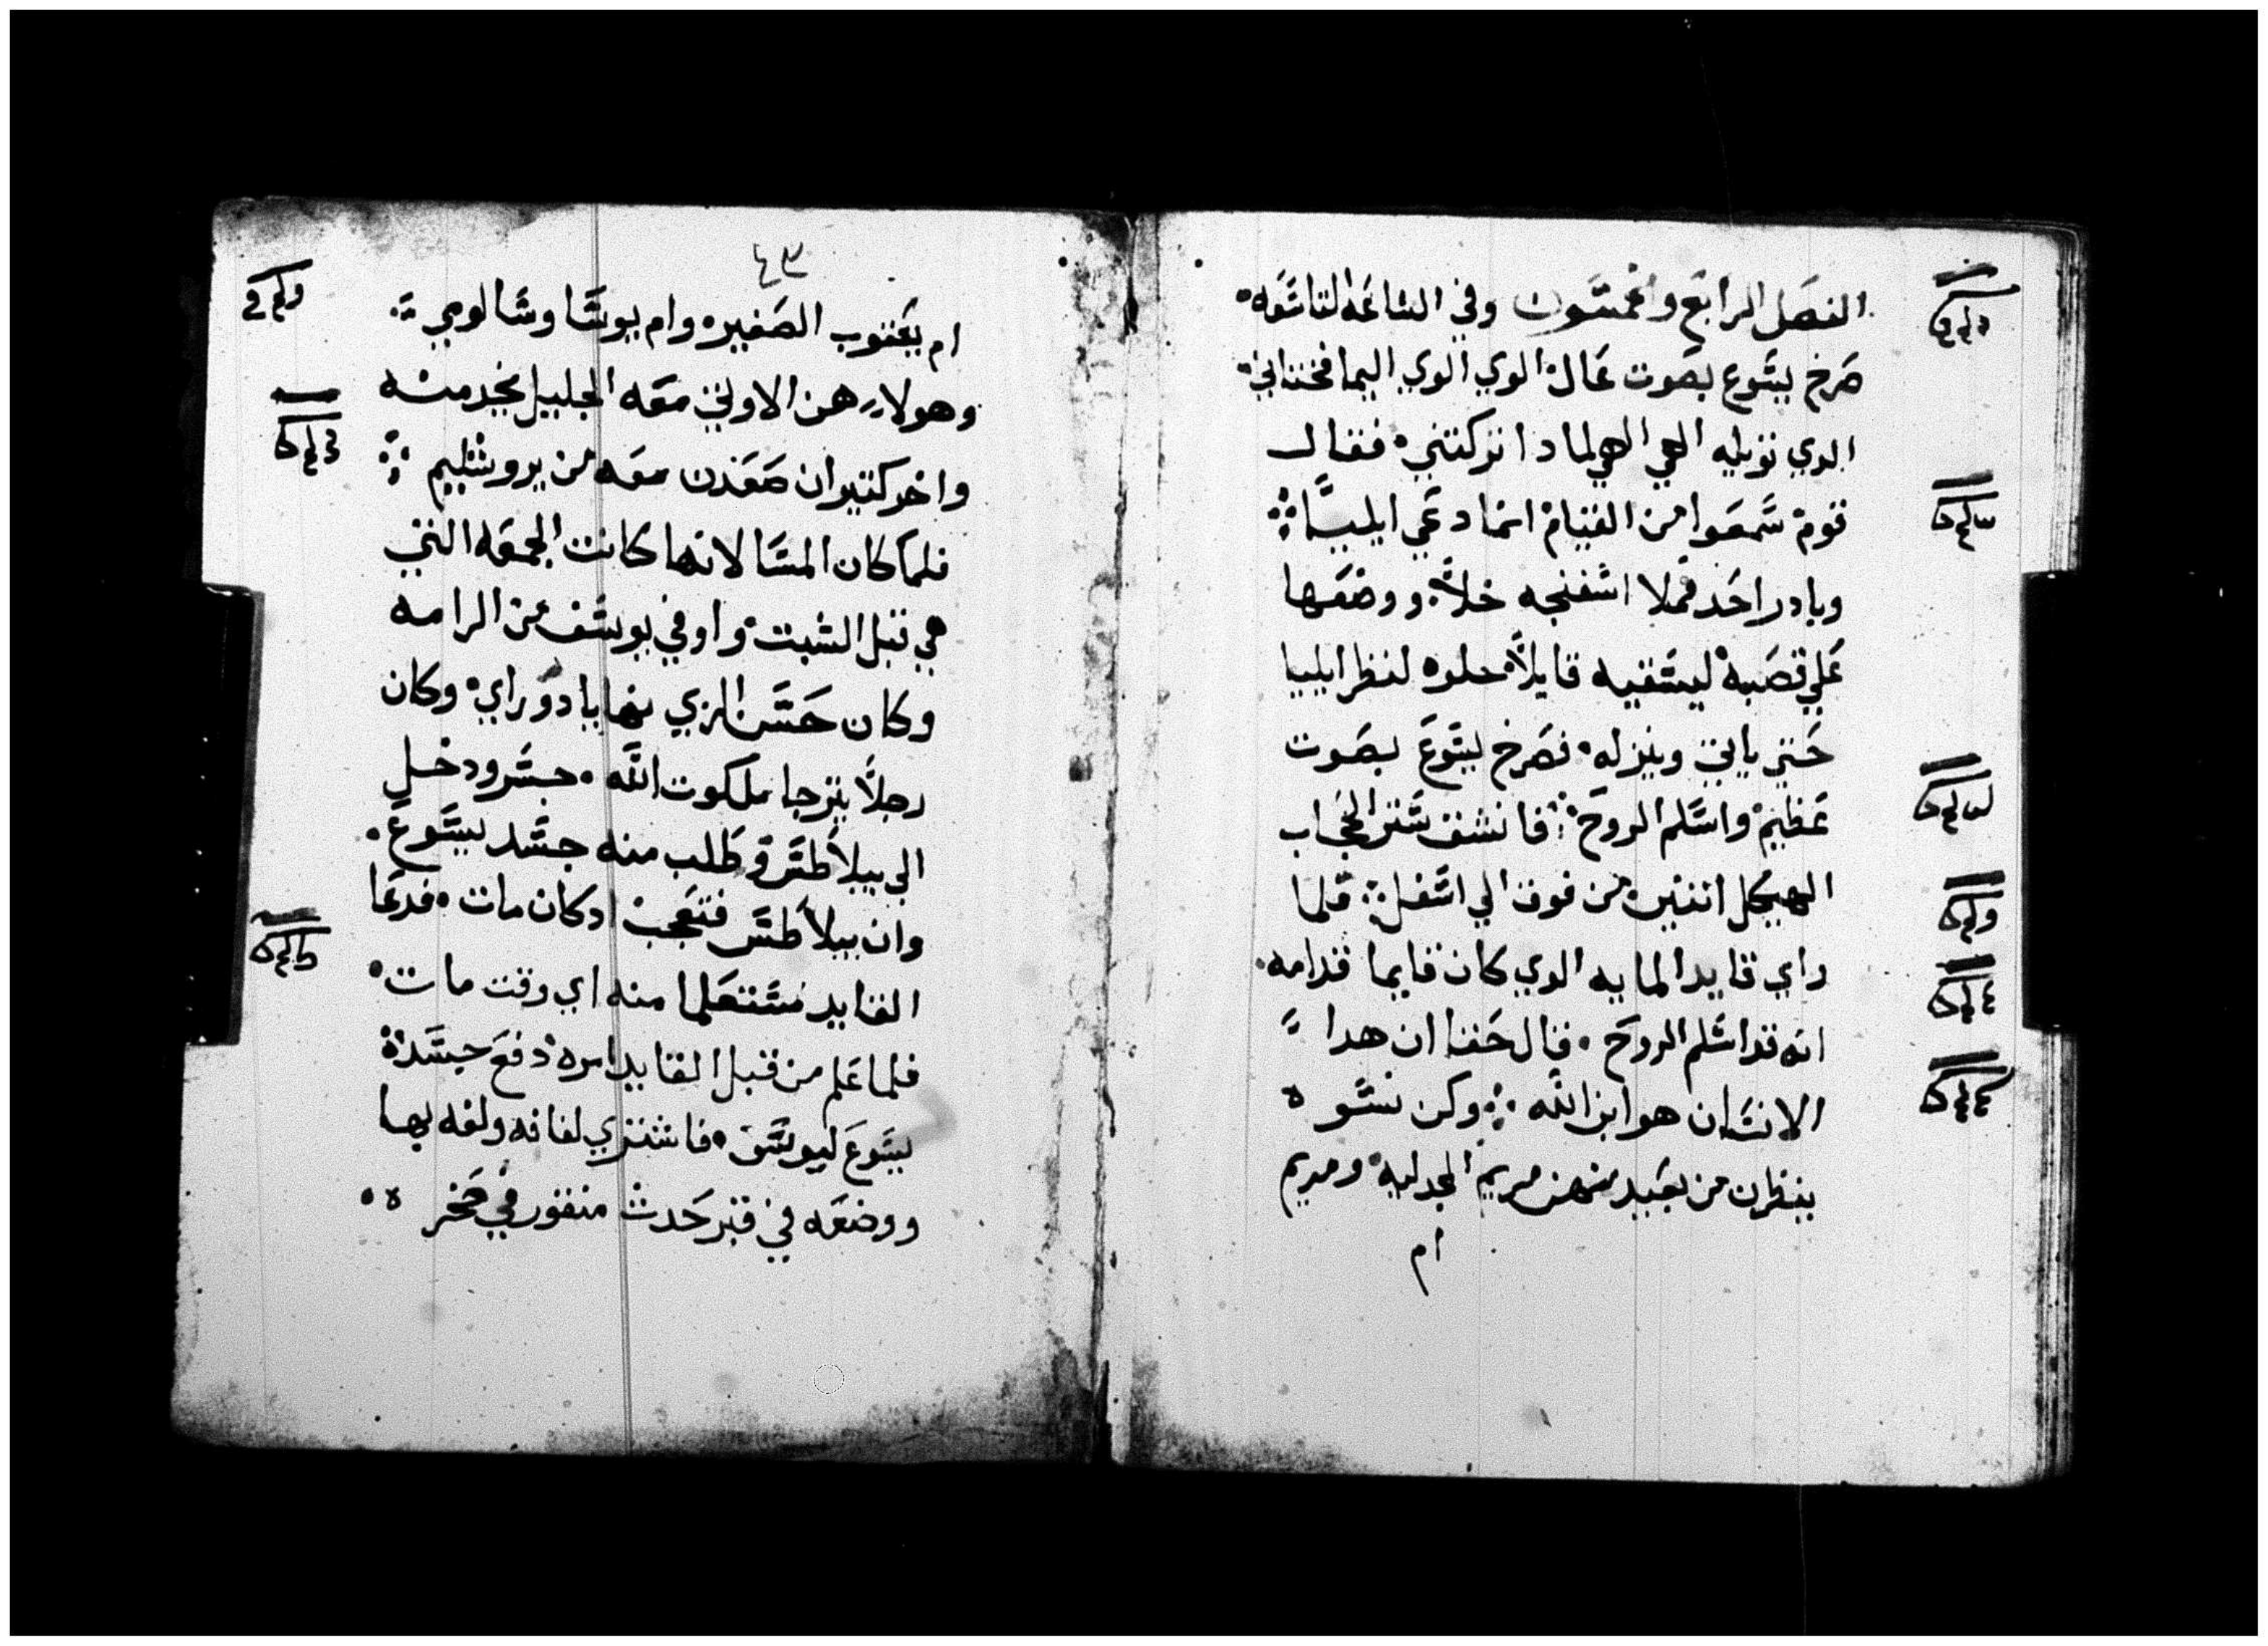 الفصل الرابع والخمسون وفي الساعه التاسعه
صرخ يسوع بصوت عال الوي الوي اليما فختاني
الدي تويله الهي الهي لمادا تركتني فقال
قوم سمعوا من القيام انما دعي ايليا
وبادر احد فملا اسفنجه خلاً ووضعها
علي قصبه ليسقيه قايلاً خلوه لنظر ايليا
حتي ياتي وينزله فصرخ يسوع بصوت
عظيم واسلم الروح فانشق ستر الحجاب
الهيكل اتنين من فوق الي اسفل فلما
راي قايد المايه الدي كان قايما قدامه
انه قد اسلم الروح قال حقا ان هدا
الانسان هو ابن الله وكن نسوه
ينظرن من بعيد منهن مريم المجدليه ومريم
ام
٤٣
ام يعقوب الصغير وام يوسا وسالومي
وهولاء هن الاوتي معه الجليل يخدمنه
واخر كتيران صعدن معه من يروشليم
فلما كان المسا لانها كانت الجمعه التي
هي قبل السبت واوفي يوسف من الرامه
وكان حسن الزي بها وكان
رجلاً يترجا ملكوت الله جسر ودخل
الي بيلاطس وطلب منه جسد يسوع
وان بيلاطس فتعجب ادكان مات فدعا
القايد مستعلما منه اي وقت مات
فلما علم من قبل القايد امره دفع جسده
يسوع ليوسف فاشتري لفافه ولفه بها
ووضعه في قبر حدث منقور في صخر